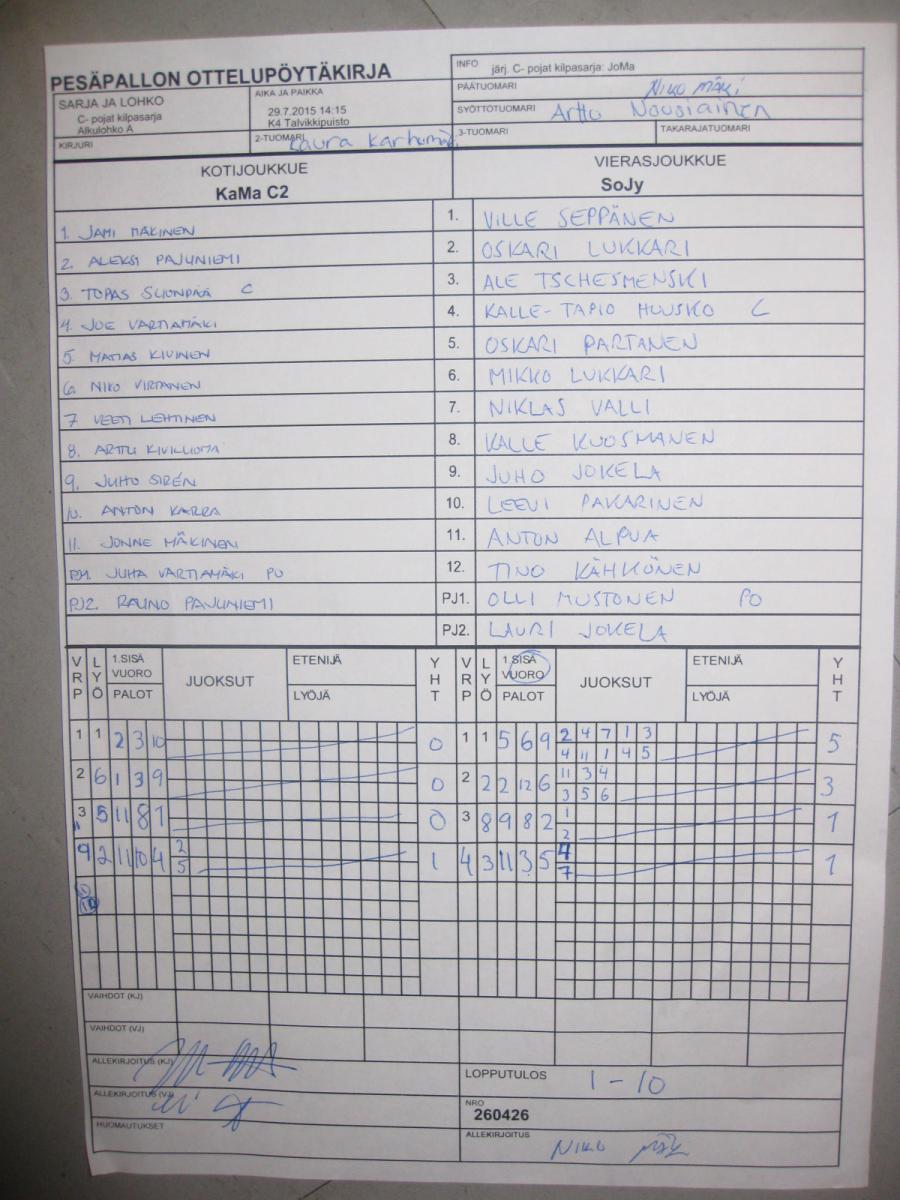 PESÄPALLON OTTELUPÖYTÄKIRJA
INFO järj. C- pojat kilpasarja: JoMa
PÄÄTUOMARI Niko Mäki
SARJA JA LOHKO
C- pojat kilpasarja
Alkulohko A
AIKA JA PAIKKA
29.7.2015 14:15
K4 Talvikkipuisto
SYÖTTÖTUOMARI Arttu Nousiainen
KIRJURI
2-TUOMARI Laura
3-TUOMARI
TAKARAJATUOMARI
KOTIJOUKKUE
KaMa C2
VIERASJOUKKUE
SoJy
1. JAMI MÄKINEN
1. VILLE SEPPÄNEN
2. ALEKSI PAJUNIEMI
2. OSKARI LUKKARI
3. TOPAS SUONPÄÄ C
3. ALE TSCHESMENSKI
4. JOE VARTIAMÄKI
4. KALLE-TAPIO HUUSKO C
5. MATIAS KIVINEN
5. OSKARI PARTANEN
6. NIKO VIRTANEN
6. MIKKO LUKKARI
7 VEETI LEHTINEN
7. NIKLAS VALLI
8. ARTTU KIVILUOMA
8. KALLE KUOSMANEN
9. JUHO SIRÉN
9. JUHO JOKELA
10. ANTON KARRA
10. LEEVI PAKARINEN
11. JONNE MÄKINEN
11. ANTON ALPUA
PJ1. JUHA VARTIAMÄKI PO
12. TINO KÄHKÖNEN
PJ2. RAUNO PAJUNIEMI
PJ1. OLLI MUSTONEN PO
PJ2. LAURI JOKELA
VRP LYÖ 1.SISÄ VUORO PALOT JUOKSUT ETENIJÄ LYÖJÄ YHT
VRP LYÖ 1.SISÄ VUORO PALOT JUOKSUT ETENIJÄ LYÖJÄ YHT
1 1 2 3 10 0
1 1 5 6 9 2 4 7 1 3 5
4 11 1 4 5
2 6 1 3 9 0
2 2 2 12 6 11 3 4 3
3 5 6
3 5 11 8 1 0
3 8 9 8 2 1 1
2
4 2 11 10 4 2 1
5
4 3 11 3 5 4 1
7
VAIHDOT (KJ)
VAIHDOT (VJ)
ALLEKIRJOITUS (KJ)
LOPPUTULOS 1 - 10
ALLEKIRJOITUS (VJ)
NRO
260426
HUOMAUTUKSET
ALLEKIRJOITUS
NIKO Mäki